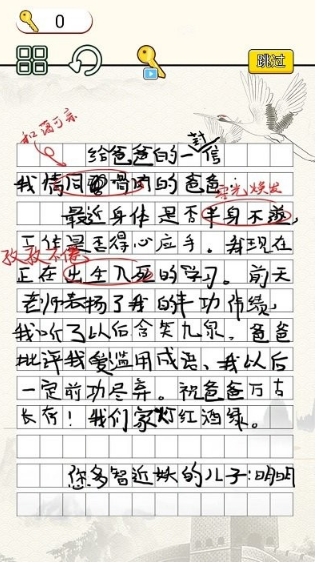 0
跳过
和蔼可亲
给爸爸的一封信
我情同骨肉的爸爸
容光焕发
最近身体是否半身不遂,
工作是否得心应手。我现在
孜孜不倦
正在出生入死的学习。前天
老师表扬了我的丰功伟绩,
我听了以后含笑九泉,爸爸
批评我爱滥用成语,我以后
一定前功尽弃。祝爸爸万古
长存!我们家灯红酒绿。
您多智近妖的儿子:明明